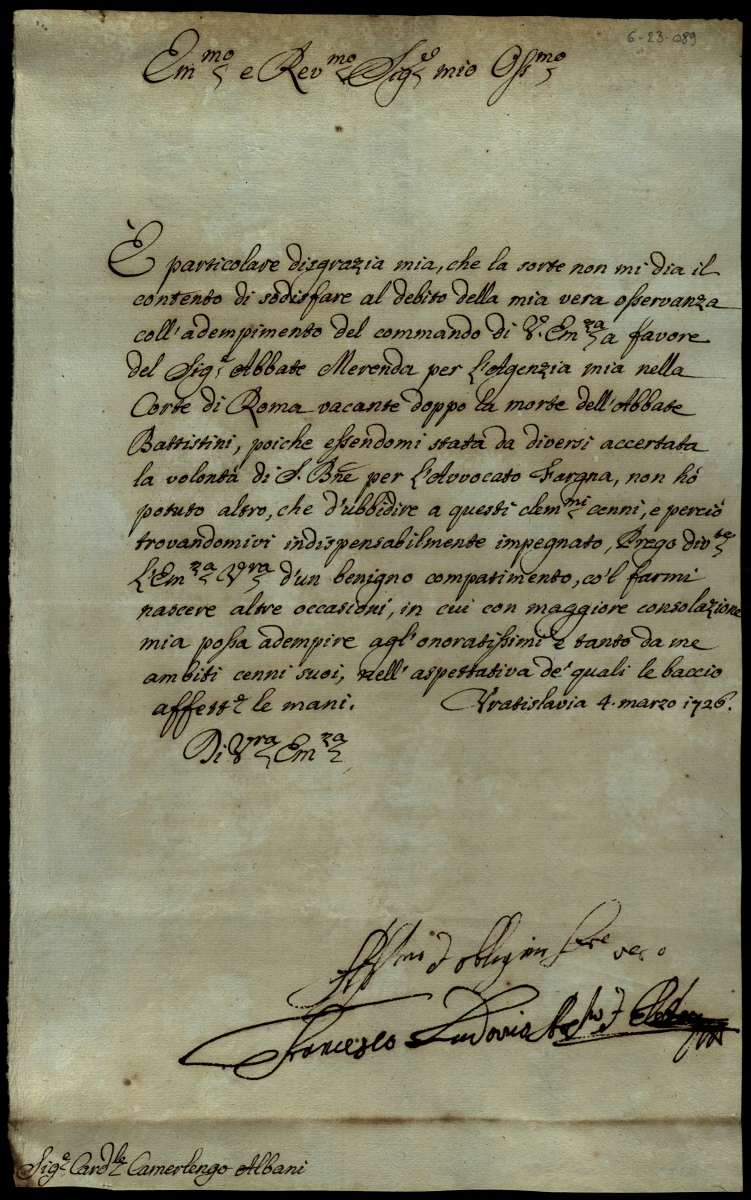 6-23-089
Em.mo e Rev.mo Sig.e mio Oss.mo
È particolare disgrazia mia, che la sorte non mi dia il
contento di sodisfare al debito della mia vera osservanza
coll' adempimento del commando di V.a Em.za a favore
del Sig.e Abbate Merenda per l'Agenzia mia nella
Corte di Roma vacante doppo la morte dell'Abbate
Battistini, poiche essendomi stata da diversi accertata
la volontà di S. Bne per l'Avvocato Fargna, non hò
potuto altro, che d'ubbidire a questi clem.mi cenni, e perciò
trovandomivi indispensabilmente impegnato, Prego div.te
l'Em.za V.ra d'un benigno compatimento, co'l farmi
nascere altre occasioni, in cui con maggiore consolazione
mia possa adempire agl'onoratissimi e tanto da me
ambiti cenni suoi, nell' aspettativa de' quali le baccio
affett.e le mani. Vratislavia 4. marzo 1726.
Di V.ra Em.za
Francesco Ludovico
Sig.e Card.le Camerlengo Albani